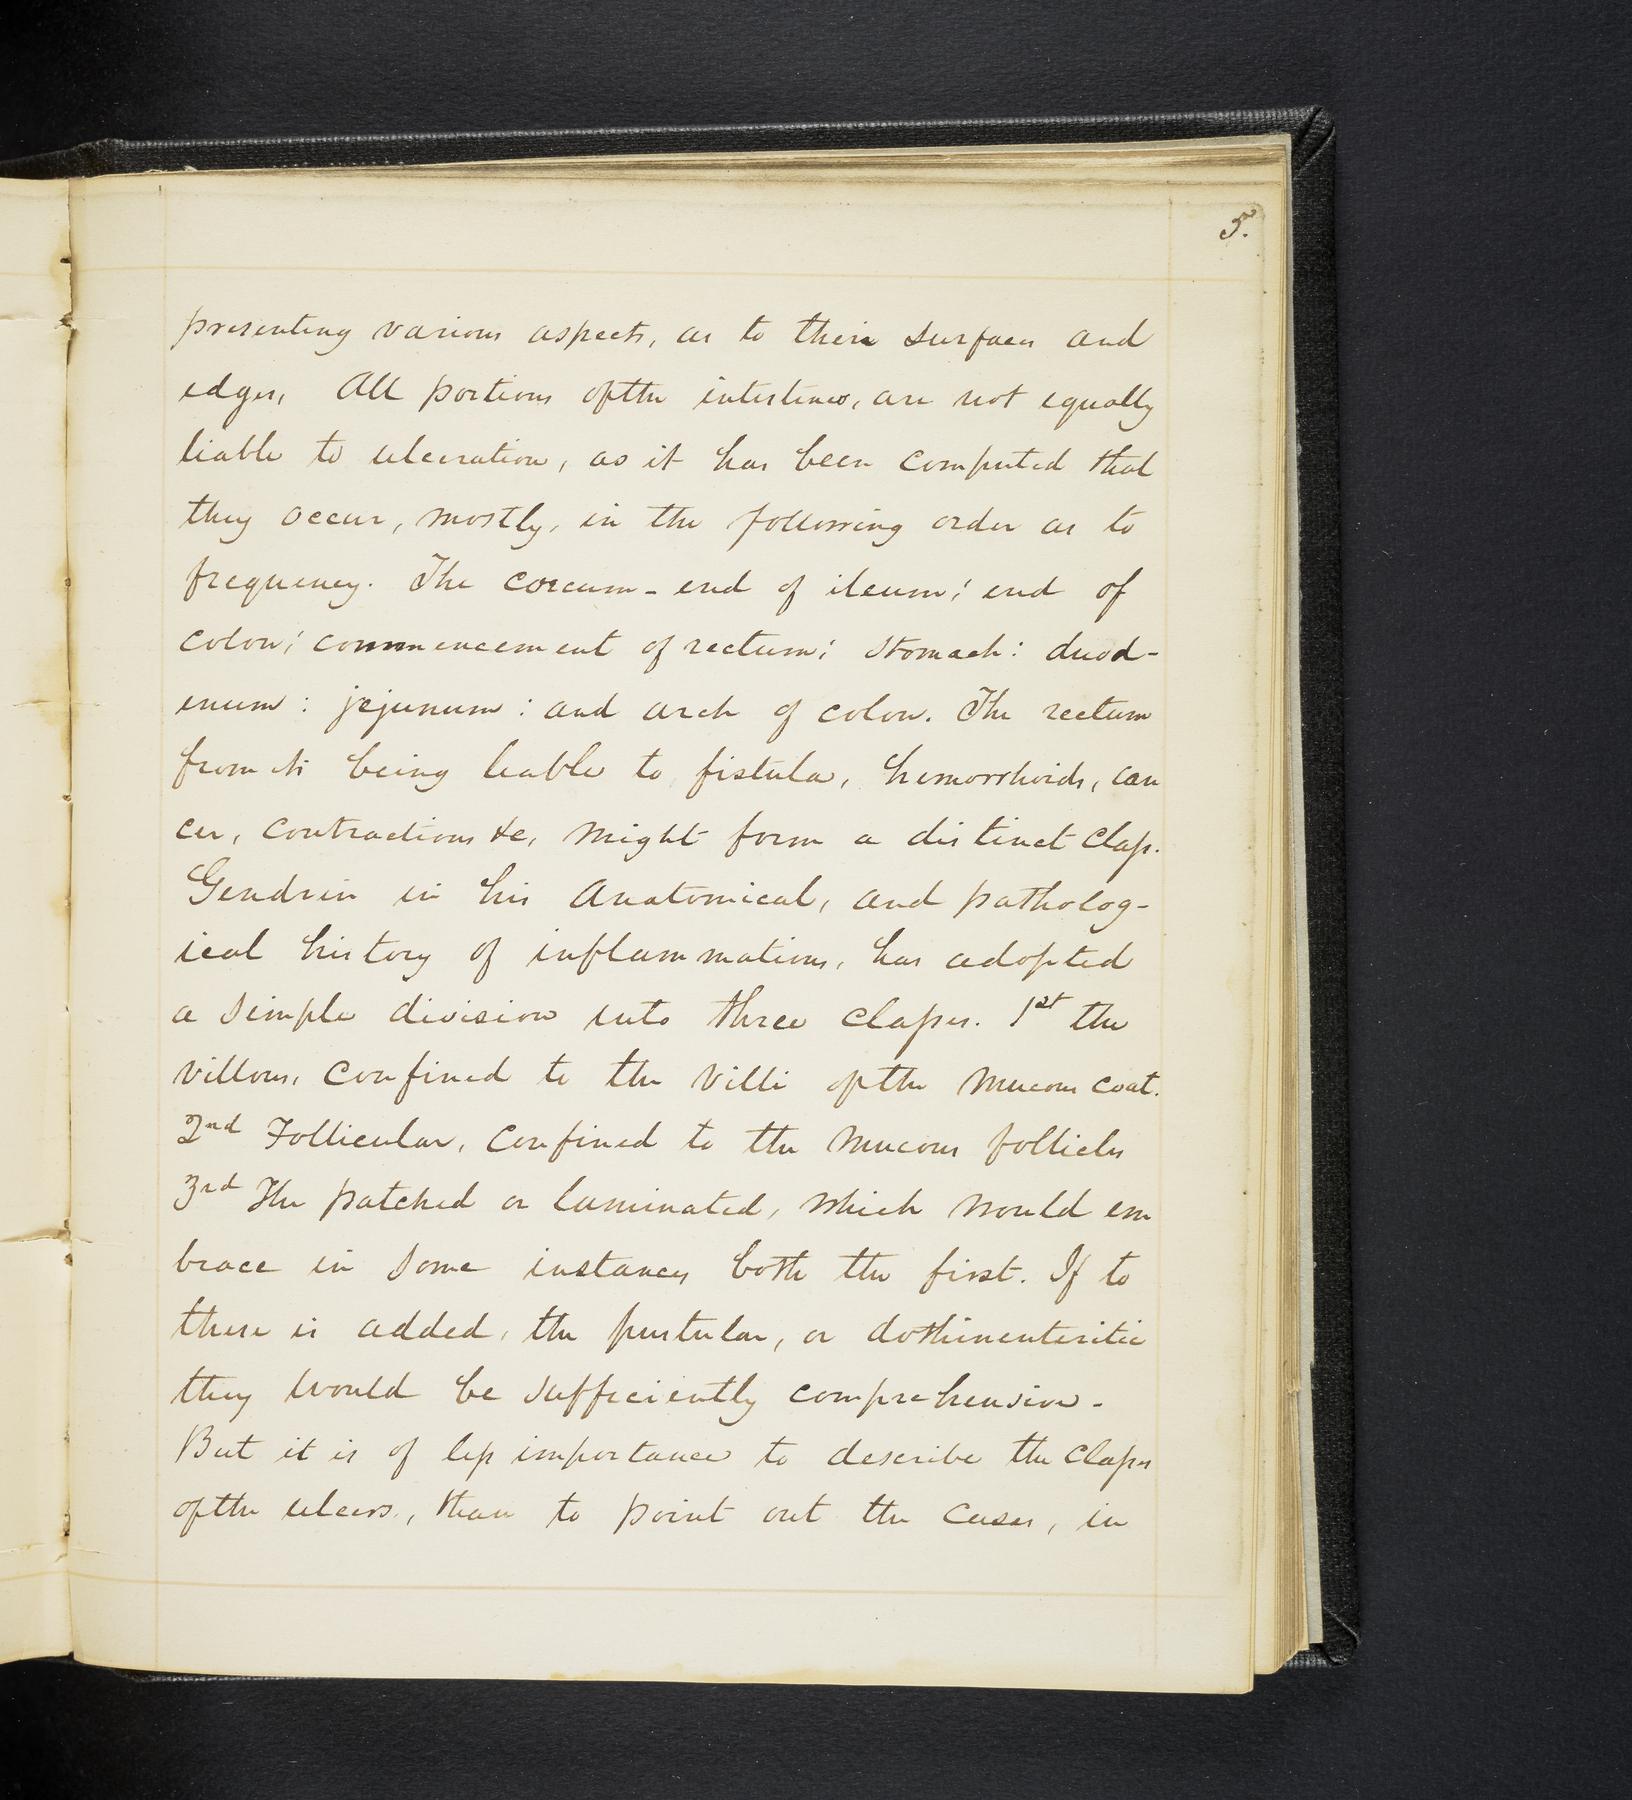 5.
presenting various aspects, as to their surfaces and
edges, All portions of the intestines, are not equally
liable to ulceration, as it has been computed that
they occur, mostly, in the following order as to
frequency. The coecum - end of ileum; end of
colon; commencement of rectum; stomach: duod-
enum: jejunum: and arch of colon. The rectum
from its being liable to fistula, hemorrhoids, can
cer, contractions &c, might form a distinct class.
Gendrin in his Anatomical, and patholog-
ical history of inflammations, has adopted
a simple division into three classes. 1st the
villous, confined to the villi of the mucous coat.
2nd Follicular, confined to the mucous follicles
3rd The patched or laminated, which would em
brace in some instances both the first. If to
these is added, the pustular, or dothinenteritic
they would be sufficiently comprehensive -
But it is of less importance to describe the classes
of the ulcers, than to point out the cases, in